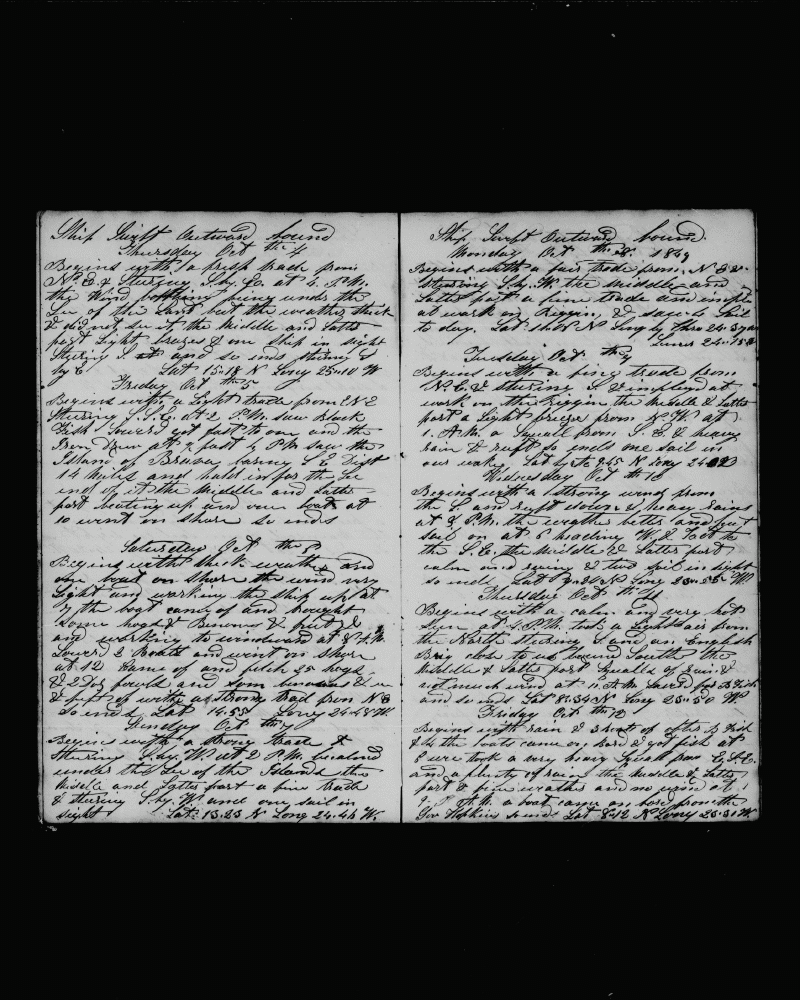 Ship Swift Outward bound
Thursday Oct th 4
Begins with a fresh trade from
N. E. & Stering S. by E. at 4. P.M.
the Wind being under the
Lee of the Land but the weather thick
& did not see it the Middle and Latter
part Light brases & one Ship in sight
Stering S at and so ends stering S
by E Lat 15.18 N Long 25.10 W
Friday Oct th 5
Begins with a Light trade from E N E
Stering S. S. E. at 2 P.M. saw Black
Fish Lowered got fast to one and the
Iron drew at 4 past 6 P.M. saw the
Island of Brava baring S E Dist
14 Miles and hald in for the Lee
end of it the Middle and Latter
part beating up and one boat at
10 went on shore so ends
Saturday Oct th 6
Begins with thick weather and
one boat on shore the wind very
Light and working the ship up at
7 the boat came of and brought
some hogs & Bananas & fruit &
and working to windward at 8 A.M.
Lowerd 2 Boats and went on shore
at 12 came of and fetch 25 hogs
& 2 Doz fowls and som bananas &
& of with a strong trad from N E
So ends Lat 14.55 Long 24.48 W
Sunday Oct th 7
Begins with a strong trade &
Stering S. by W. at 2 P.M. becalmd
under the Lee of the Islands the
Middle and Latter part a fine trade
& stering S. by W. and one sail in
sight Lat. 13.23 N Long 24.46 W.
Ship Swift Outward bound.
Monday Oct th 8. 1849
Begins with a fair trade from N E &
Stering S. by W. the Middle and
Latter part a fine trade and imploy
at work on Riggin, & saw 4 Sail
to day. Lat 11.08 N Long by Chro 24.37
Lunar 24.15
Tuesday Oct th 9
Begins with a fine trade from
N. E. & stering S & imployd at
work on the Riggin the Middle & Latter
part a Light breeze from S. W. at
1. A.M. a Squall from S. E. & heavy
rain & so ends one sail in
our wake Lat by 8.45 N Long 24
Wednesday Oct th 10
Begins with a strong wind from
the S. and reeft down & heavy rains
at 8 P.M. the weather better and put
sail on at 6 heading W. & Tackt to
the S. E. the Middle & Latter part
calm and squaly & two sail in sight
so ends Lat N Long 23.55 W.
Thursday Oct th 11
Begins with a calm and very hot
Sun at 4 P.M. took a Light air from
the North stering S. and an English
Brig close to us bound South the
Middle & Latter part Squalls of rain &
not much wind at 11. A.M. Lowerd for B Fish
and so ends Lat 8.34 N Long 23.50 W.
Friday Oct th 12
Begins with rain & 3 boats of after B Fish
& the boats came on bord & got fish at
8 we took a very heavy Squall from E. S. E.
and a plenty of rain the Middle & Latter
part fine weather and no wind at
A.M. a boat came on bord from the
Gov Hopkins so ends Lat 8.12 N Long 23.30 W